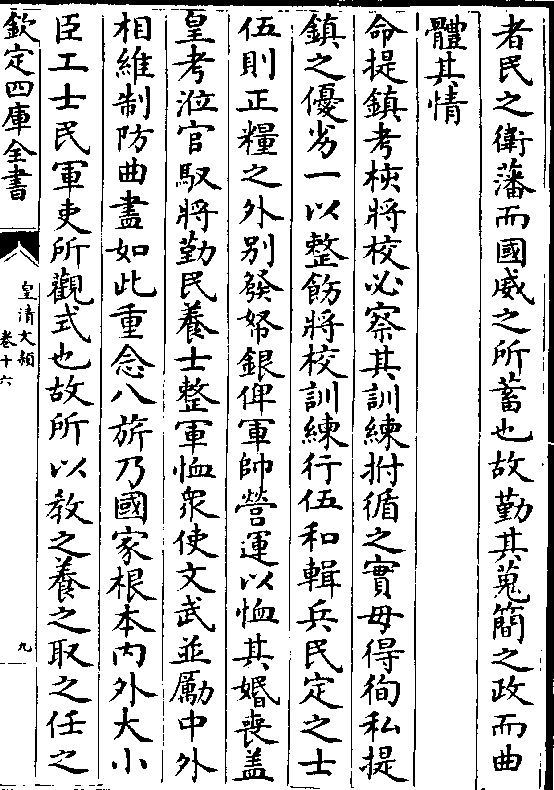 者民之衛藩而國威之所蓄也故勤其蒐簡之政而曲
體其情
命提鎮考核將校必察其訓練拊循之實毋得徇私提
鎮之優劣一以整飭將校訓練行伍和輯兵民定之士
伍則正糧之外别發帑銀俾軍帥營運以恤其婚喪盖
皇考涖官馭將勤民養士整軍恤衆使文武並勵中外
相維制防曲盡如此重念八旂乃國家根本内外大小
臣工士民軍吏所觀式也故所以教之養之取之任之
欽定四庫全書
皇清文頴
卷十六
九